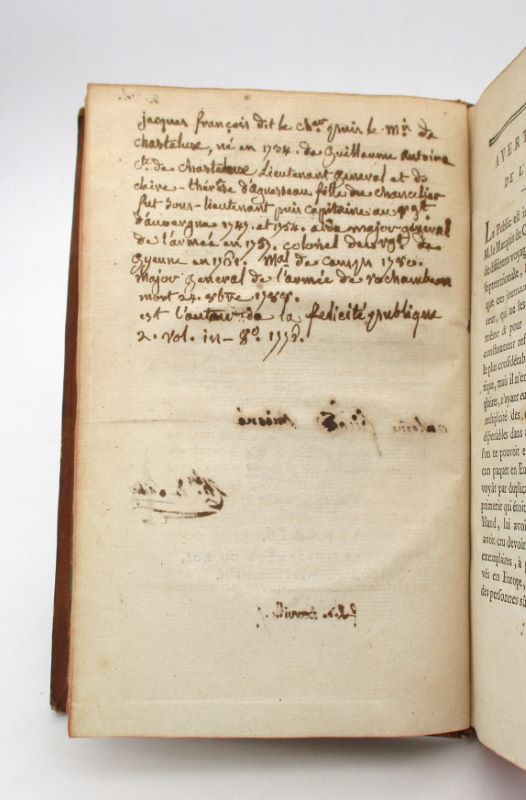 jacques françois dit le cher puis le mis de
chastelux, né en 1734. de Guillaume antoine
cte de chastelux Lieutenant general et de
claire-thérèse d'aguesseau fille du chancelier
fut sous-lieutenant puis capitaine au rgt
d'auvergne 1747. et 1754. aide major général
de l'armée en 1759. colonel du rgt de
guyenne en 1761. mal de camp 1780.
major general de l'armée de rochambeau
mort 24. 8bre 1788.
est l'auteur de la felicité publique
2. vol. in-8o. 1776.
AVERT
DE L'
Le Public est i
M. le Marquis de C
de différens voyag
septentrionale,
que ces journau
rent, qui ne les
même & pour
constamment ref
le plus considérabl
rique, mais il n'en
plaires, n'ayant eu
multiplicité des
dispersables dans
l'on ne pouvoit e
cun paquet en Eu
voyât par duplica
primerie qui étoit
Island, lui avoi
avoit cru devoir
exemplaires, à p
vés en Europe,
des personnes sû